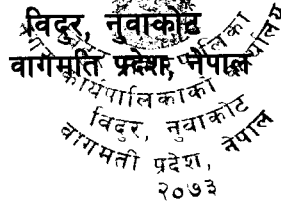 विदुर, नुवाकोट
वागमति प्रदेश, नेपाल
कार्यपालिकाको
विदुर, नुवाकोट
बागमती प्रदेश, नेपाल
२०७३